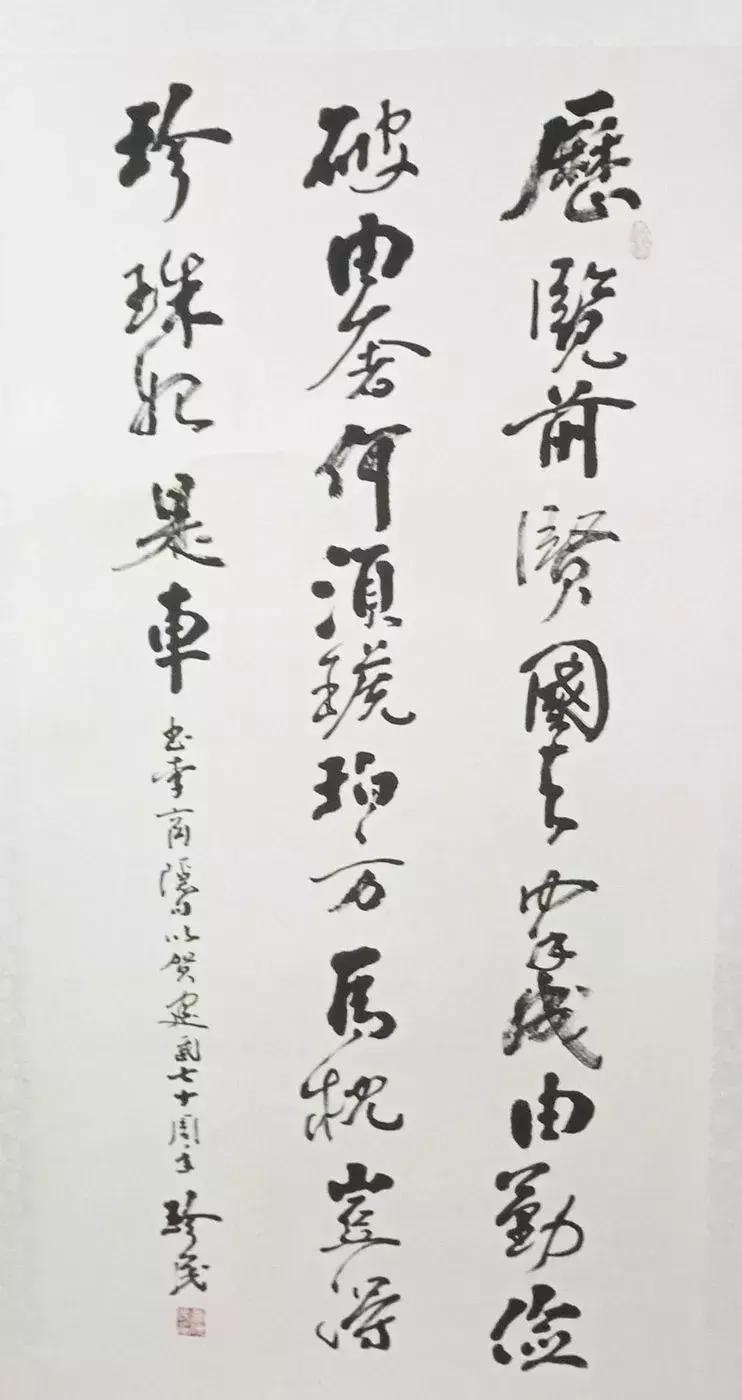 歷覽前賢國与家成由勤儉
破由奢何須琥珀方為枕豈得
珍珠始是車 書李商隱句以賀建國七十周年 珍民